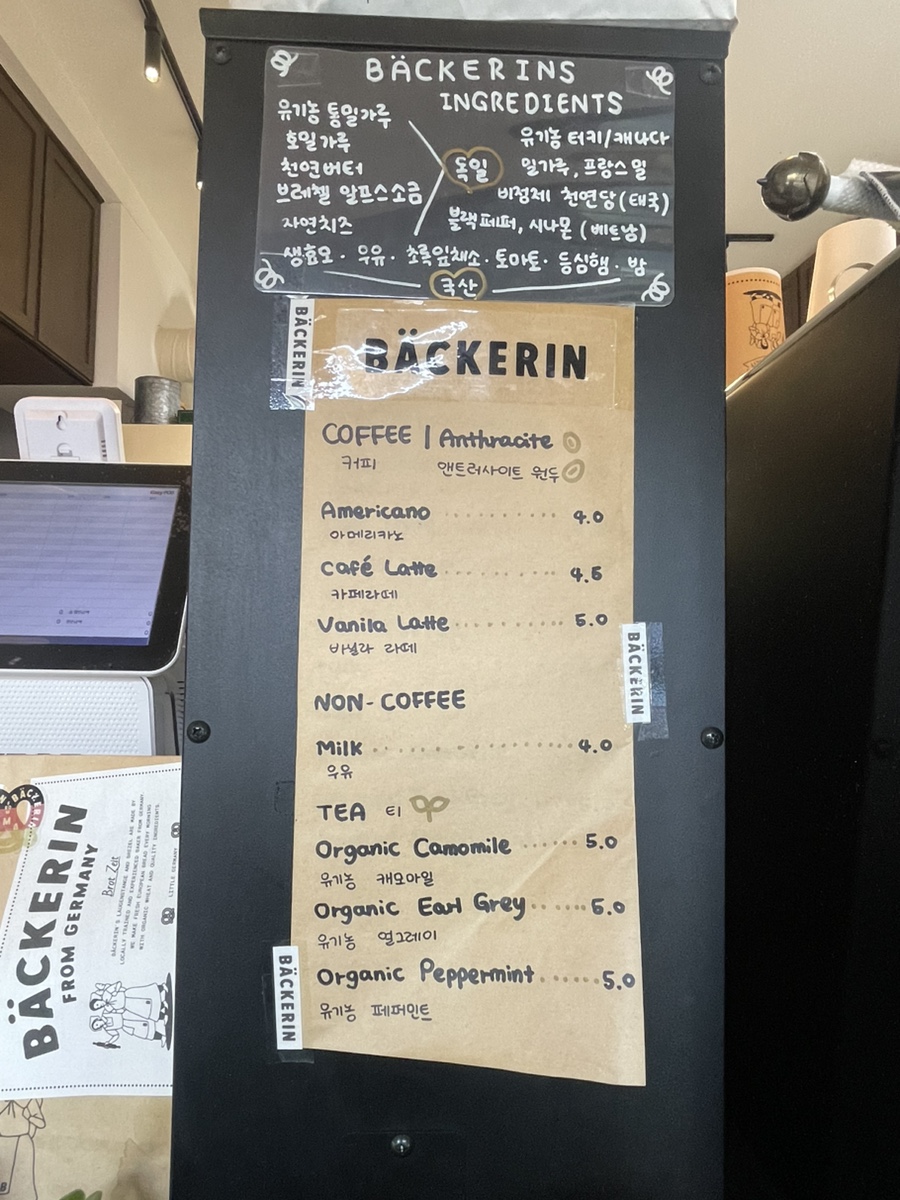 BÄCKERINS
INGREDIENTS
유기농 통밀가루
호밀가루
천연버터
브레첼 알프스소금
자연치즈
독일
유기농 터키/캐나다
밀가루, 프랑스밀
비정제 천연당(태국)
블랙페퍼, 시나몬 (베트남)
생효모 · 우유 · 초록잎채소 · 토마토 · 등심햄 · 밤
국산
BÄCKERIN
BÄCKERIN
COFFEE | Anthracite
커피 앤트러사이트 원두
Americano ········· 4.0
아메리카노
Café Latte ········· 4.5
카페라떼
Vanila Latte ········· 5.0
바닐라 라떼
BÄCKERIN
NON-COFFEE
Milk ············· 4.0
우유
TEA 티
Organic Camomile ······ 5.0
유기농 캐모마일
Organic Earl Grey ······ 5.0
유기농 얼그레이
Organic Peppermint ······ 5.0
유기농 페퍼민트
BÄCKERIN
BÄCKERIN
FROM GERMANY
Brot Zeit
BÄCKERIN'S LAUGENSTANGE AND BREZEL ARE MADE BY
LOCALLY TRAINED AND EXPERIENCED BAKER FROM GERMANY.
WE MAKE FRESH EUROPEAN BREAD EVERY MORNING
WITH ORGANIC WHEAT AND QUALITY INGREDIENTS.
LITTLE GERMANY